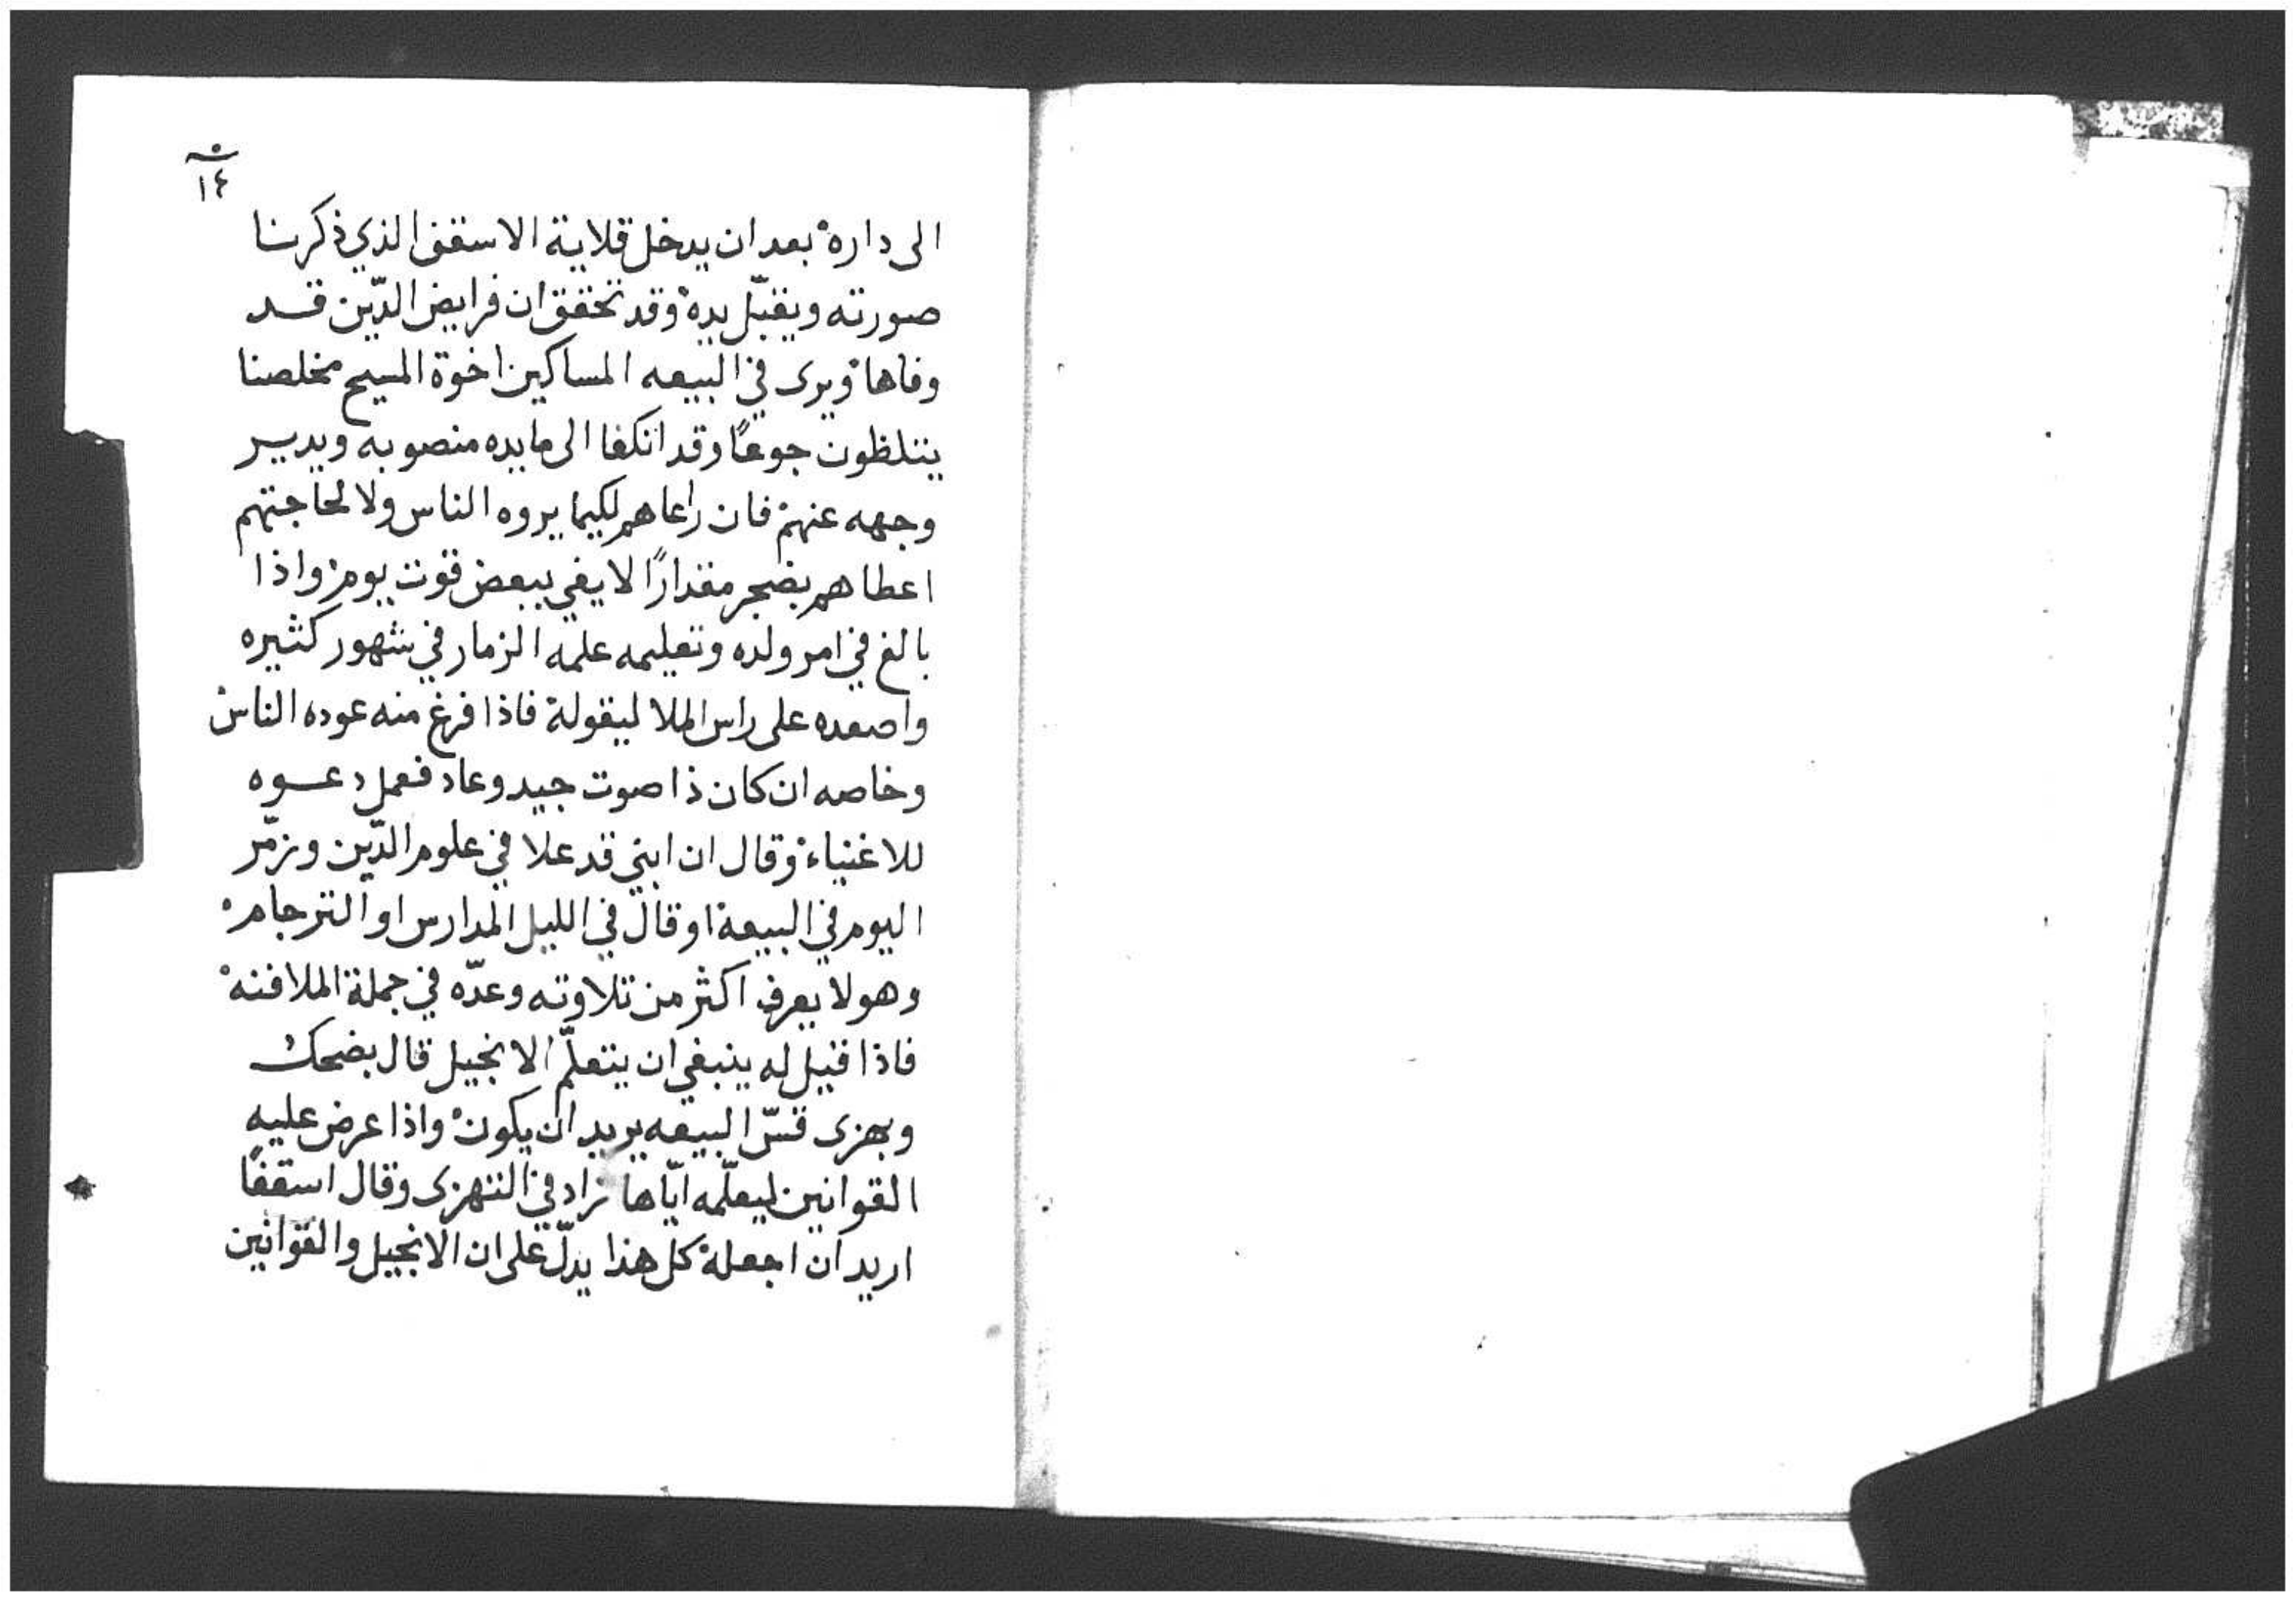 ١٤
الى داره بعد ان يدخل قلاية الاسقف الذي ذكرنا
صورته ويقبّل يده وقد تحقق ان فرايض الدّين قد
وفاها ويرى في البيعه المساكين اخوة المسيح مخلصنا
يتلظون جوعًا وقد انكفا الى مايده منصوبه ويدير
وجهه عنهم فان راعاهم لكيما يروه الناس ولا لحاجتهم
اعطاهم بضجر مقدارًا لا يفي ببعض قوت يوم واذا
بالغ في امر ولده وتعليمه علمه الزمار في شهور كثيره
واصعده على راس الملا ليقوله فاذا فرغ منه عوده الناس
وخاصه ان كان ذا صوت جيد وعاد فعمل دعوه
للاغنياء وقال ان ابني قد علا في علوم الدّين وزمّر
اليوم في البيعة او قال في الليل المدارس او الترجام
وهو لا يعرف اكثر من تلاوته وعدّه في جملة الملافنه
فاذا قيل له ينبغي ان يتعلّم الانجيل قال بضحك
وبهزى قسّ البيعه يريد ان يكون واذا عرض عليه
القوانين ليعلّمه ايّاها زاد في التهزى وقال اسقفًا
اريد ان اجعله كل هذا يدلّ على ان الانجيل والقوانين